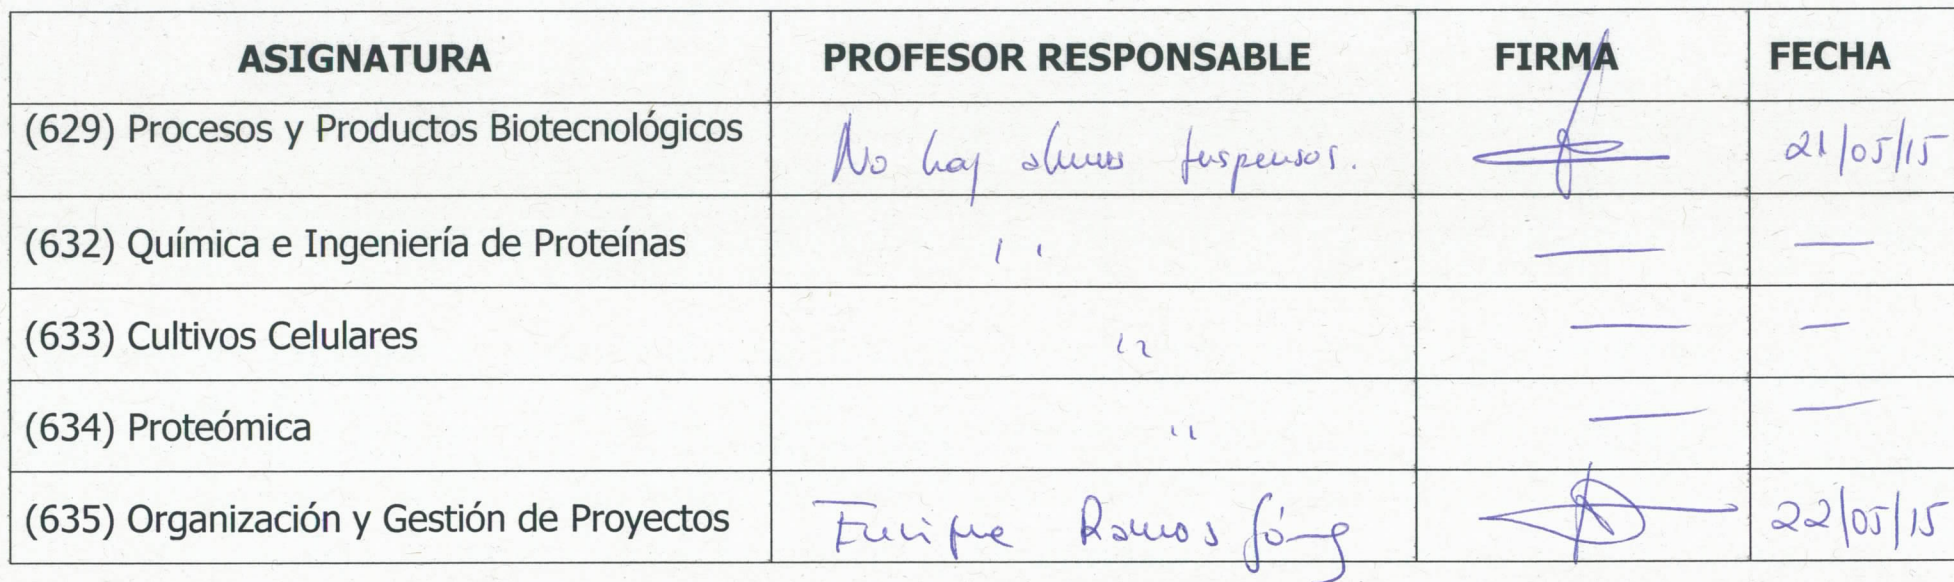 ASIGNATURA PROFESOR RESPONSABLE FIRMA FECHA
(629) Procesos y Productos Biotecnológicos No hay alumnos suspensos. 21/05/15
(632) Química e Ingeniería de Proteínas " — —
(633) Cultivos Celulares " — —
(634) Proteómica " — —
(635) Organización y Gestión de Proyectos Enrique Ramos Gómez 22/05/15